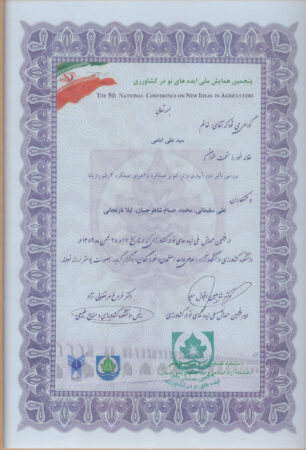 پنجمین همایش ملی ایده های نو در کشاورزی
THE 5th NATIONAL CONFERENCE ON NEW IDEAS IN AGRICULTURE
بسمه تعالی
گواهی می شود که آقای / خانم
سید علی امامی
مقاله خود را تحت عنوان
بررسی تأثیر دور آبیاری و تراکم بر عملکرد و اجزای عملکرد ۲ رقم رازیانه
و همکاران
علی سلیمانی، محمد حسام شاهرجبیان، لیلا نارنجانی
در پنجمین همایش ملی ایده های نو در کشاورزی که در تاریخ ۲۷ و ۲۸ بهمن ۸۹ در
دانشکده کشاورزی دانشگاه آزاد اسلامی واحد اصفهان (خوراسگان) برگزار گردید، بصورت پوستر ارائه نمودند.
دکتر شاهین اقبال سعید
دبیر پنجمین همایش ملی ایده های نو در کشاورزی
دکتر فروغ مرتضایی نژاد
رئیس دانشکده کشاورزی و منابع طبیعی
ایده های نو در کشاورزی